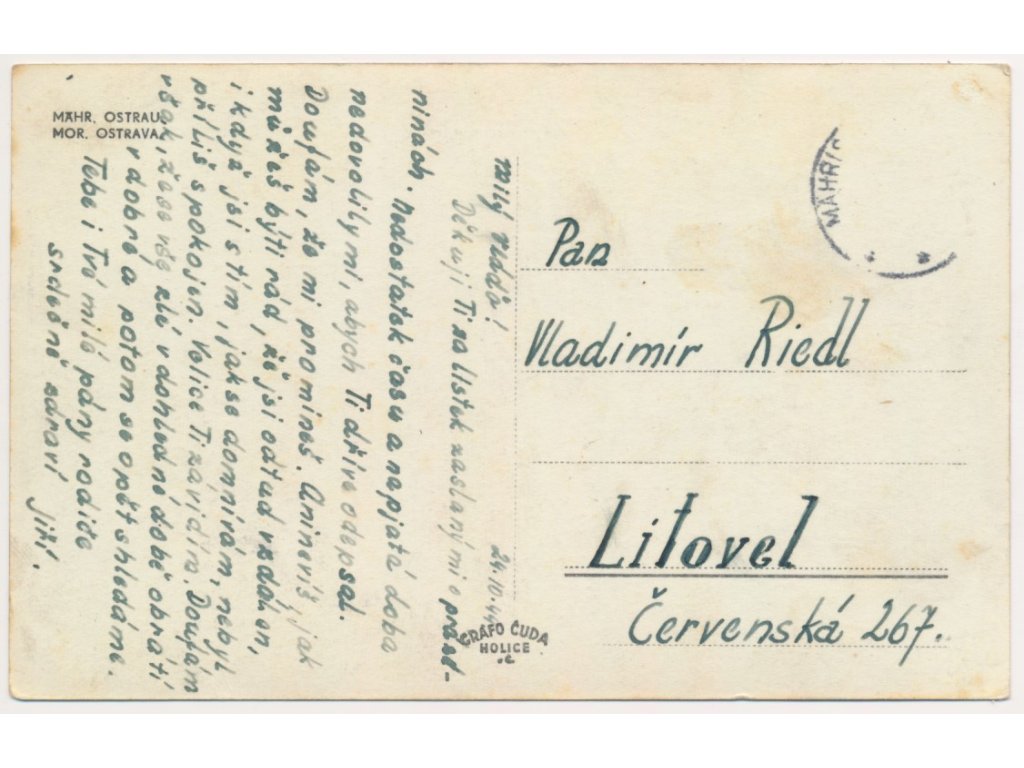 MÄHR. OSTRAU
MOR. OSTRAVA
24.10.44
milý Vláďo!
Děkuji Ti za lístek zaslaný mi o prázd-
ninách. Nedostatek času a napjatá doba
nedovolily mi, abych Ti dříve odepsal.
Doufám, že mi promineš. Ani nevíš, jak
můžeš býti rád, že jsi odtud vzdálen,
i když jsi s tím, jak se domnívám, nebyl
příliš spokojen. Velice Ti závidím. Doufám
však, že se vše zlé v dohledné době obrátí
v dobré a potom se opět shledáme.
Tebe i Tvé milé pány rodiče
srdečně zdraví
Jiří.
GRAFO ČUDA
HOLICE
MÄHRIS
Pan
Vladimír Riedl
Litovel
Červenská 267.